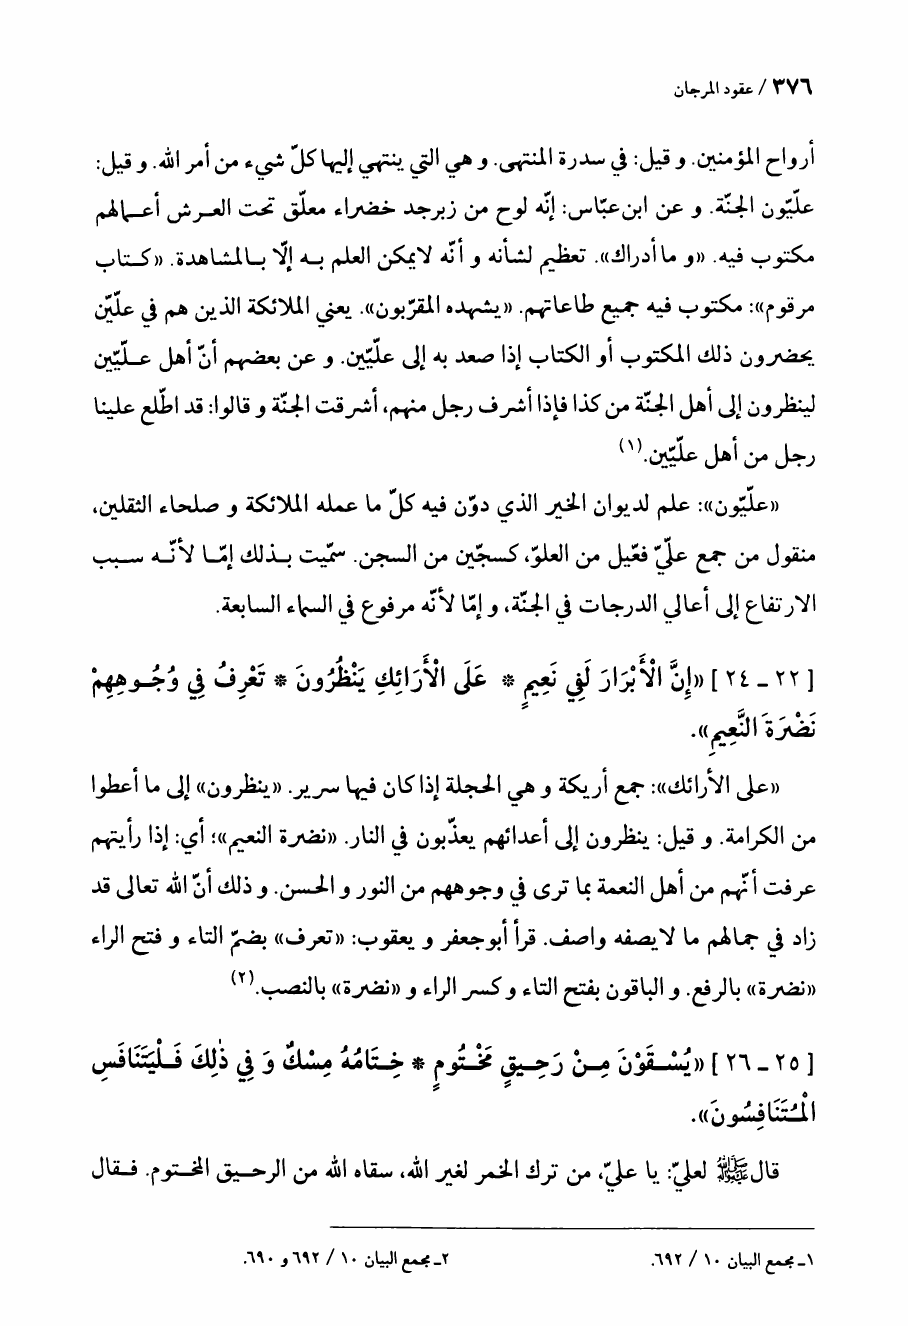 ٣٧٦ / عقود المرجان
أرواح المؤمنين. و قيل: في سدرة المنتهى. و هي التي ينتهي إليها كلّ شيء من أمر الله. و قيل:
علّيّون الجنّة. و عن ابن عبّاس: إنّه لوح من زبرجد خضراء معلّق تحت العرش أعمالهم
مكتوب فيه. «و ما أدراك». تعظيم لشأنه و أنّه لايمكن العلم به إلّا بالمشاهدة. «كتاب
مرقوم»: مكتوب فيه جميع طاعاتهم. «يشهده المقرّبون». يعني الملائكة الذين هم في علّيّن
يحضرون ذلك المكتوب أو الكتاب إذا صعد به إلى علّيّين. و عن بعضهم أنّ أهل علّيّين
لينظرون إلى أهل الجنّة من كذا فإذا أشرف رجل منهم، أشرقت الجنّة و قالوا: قد اطّلع علينا
رجل من أهل علّيّين.(١)
«علّيّون»: علم لديوان الخير الذي دوّن فيه كلّ ما عمله الملائكة و صلحاء الثقلين،
منقول من جمع علّيّ فعّيل من العلوّ، كسجّين من السجن. سمّيت بذلك إمّا لأنّه سبب
الارتفاع إلى أعالي الدرجات في الجنّة، و إمّا لأنّه مرفوع في السماء السابعة.
[٢٢ ـ ٢٤] «إِنَّ الْأَبْرَارَ لَفِي نَعِيمٍ * عَلَى الْأَرَائِكِ يَنْظُرُونَ * تَعْرِفُ فِي وُجُوهِهِمْ
نَضْرَةَ النَّعِيمِ».
«على الأرائك»: جمع أريكة و هي الحجلة إذا كان فيها سرير. «ينظرون» إلى ما أعطوا
من الكرامة. و قيل: ينظرون إلى أعدائهم يعذّبون في النار. «نضرة النعيم»؛ أي: إذا رأيتهم
عرفت أنّهم من أهل النعمة بما ترى في وجوههم من النور و الحسن. و ذلك أنّ الله تعالى قد
زاد في جمالهم ما لايصفه واصف. قرأ أبوجعفر و يعقوب: «تعرف» بضمّ التاء و فتح الراء
«نضرة» بالرفع. و الباقون بفتح التاء و كسر الراء و «نضرة» بالنصب.(٢)
[٢٥ ـ ٢٦] «يُسْقَوْنَ مِنْ رَحِيقٍ مَخْتُومٍ * خِتَامُهُ مِسْكٌ وَ فِي ذٰلِكَ فَلْيَتَنَافَسِ
الْمُتَنَافِسُونَ».
قال ﷺ لعليّ: يا عليّ، من ترك الخمر لغير الله، سقاه الله من الرحيق المختوم. فقال
١ـ مجمع البيان ١٠ / ٦٩٢. ٢ـ مجمع البيان ١٠ / ٦٩٢ و ٦٩٠.